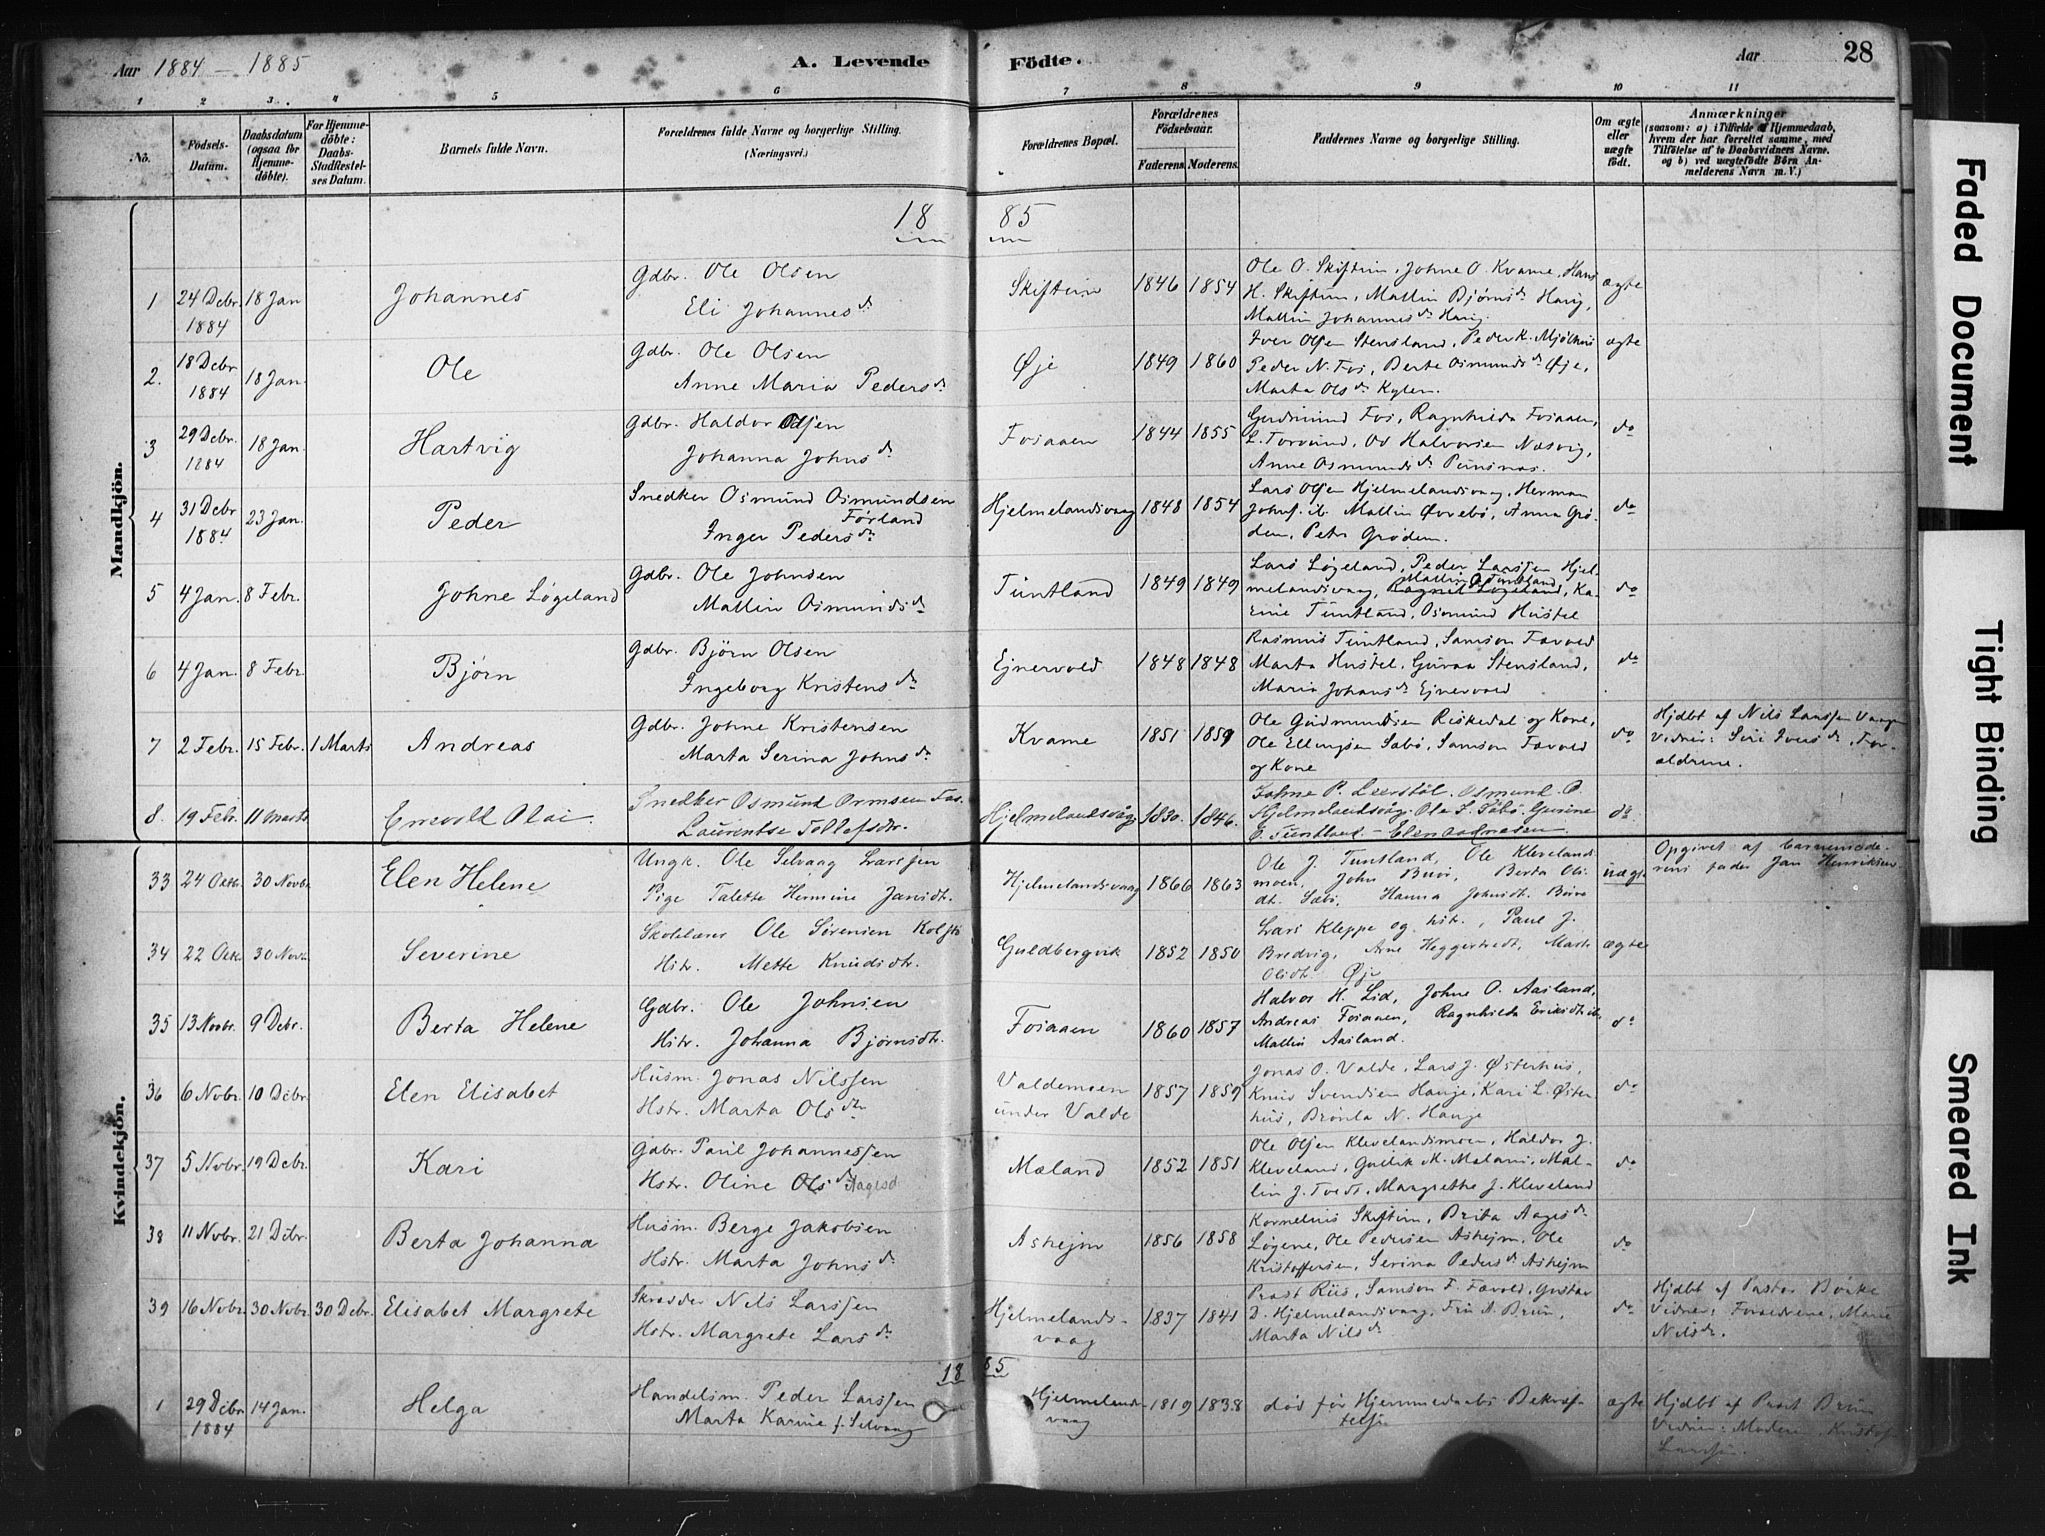 Aar 1884 - 1885
A. Levende Födte.
Aar
28
1 2 3 4 5 6 7 8 9 10 11
No.
Födsels-Datum.
Daabsdatum (ogsaa for Hjemme-döbte).
For Hjemme-döbte: Daabs-Stadfæstel-ses Datum.
Barnets fulde Navn.
Forældrenes fulde Navne og borgerlige Stilling. (Næringsvei.)
Forældrenes Bopæl.
Forældrenes Födselsaar.
Faderens. Moderens.
Faddernes Navne og borgerlige Stilling.
Om ægte eller uægte födt.
Anmærkninger
(saasom: a) i Tilfælde af Hjemmedaab, hvem der har forrettet samme, med Tilföielse af to Daabsvidners Navne, og b) ved uægtefödte Börn An-melderens Navn m. V.)
Mandkjön.
18 85
1 24 Debr. 1884 18 Jan Johannes Gdbr. Ole Olsen
Eli Johannesdr
Skiftun 1846 1854 Ole O. Skiftun, Johne O. Kvame, Hans
H. Skiftun, Mallin Bjørnsdr Haug,
Mallin Johannesdr Haug. ægte
2. 18 Debr 1884 18 Jan. Ole Gdbr. Ole Olsen
Anne Maria Pedersdr
Øje 1849 1860 Iver Olsen Stensland, Peder K. Mjølhus
Peder N. Fos, Berte Osmundsdr Øje,
Marta Olsdr Kylen. ægte
3 29 Debr. 1884 18 Jan. Hartvig Gdbr. Haldor Olsen
Johanna Johnsdr
Fosaaen 1844 1855 Gudmund Fos, Ragnhilda Fosaaen,
L. Torsund, Od Halvorsen Næsvig,
Anne Osmundsdr Punsnæs. do
4 31 Debr 1884 23 Jan. Peder Snedker Osmund Osmundsen
Førland
Inger Pedersdr
Hjelmelandsvaag 1848 1854 Lars Olsen Hjelmelandsvaag, Herman
Johns. ib. Mallin Øvrebø, Anna Grø-
dem, Petr Grødem. do
5 4 Jan. 8 Febr. Johne Løgeland Gdbr. Ole Johnsen
Mallin Osmundsdr
Tuntland 1849 1849 Lars Løgeland, Peder Larssen Hjel-
Mallin O. Tuntland
melandsvaag, Ragnil Løgeland, Ka-
rine Tuntland, Osmund Hustel do
6 4 Jan. 8 Febr Bjørn Gdbr. Bjørn Olsen
Ingeborg Kristensdr
Ejnervold 1848 1848 Rasmus Tuntland, Samson Fævold
Marta Hustel, Guroa Stensland,
Maria Johansdr Ejnervold do
7 2 Febr. 15 Febr. 1 Marts Andreas Gdbr. Johne Kristensen
Marta Serina Johnsdr
Kvame 1851 1859 Ole Gudmundsen Riskedal og Kone,
Ole Ellingsen Sæbø, Samson Fævold
og Kone do
Hjdbt af Nils Larssen Vaage
Vidner: Siri Iversdr, For-
ældrene.
8. 19 Febr. 11 Marts Enevold Olai. Snedker Osmund Ormsen Fos.
Laurentse Tollefsdr.
Hjelmelandsvåg 1830. 1846. Johne P. Leerstøl. Osmund O.
Hjelmelandsvåg. Ole L. Sæbø. Gurine
O. Tuntland - do
Kvindekjön.
33 24 Oktb. 30 Novbr Elen Helene Ungk. Ole Selvaag Larssen
Pige Talette Hermine Jansdtr.
Hjelmelandsvaag 1866 1863 Ole J. Tuntland, Ole Kleveland-
moen, John Buer, Berta Ols-
dt. Sæbø, Hanna Johnsdt. Børve uægte
Opgivet af barnemode-
rens fader Jan Henriksen
34 22 Oktb. 30 Novbr Severine Skolelærer Ole Sørensen Kolstø
Hstr. Mette Knudsdtr.
Guldbergvik 1852 1850 Lars Kleppe og hstr., Paul J.
Bredvig, Arne Heggerstvedt, Marta
Olsdt. Øje ægte
35 13 Novbr. 9 Debr. Berta Helene Gdbr. Ole Johnsen
Hstr. Johanna Bjørnsdtr.
Fosaaen 1860 1857 Halvor H. Lid, Johne O. Aasland,
Andreas Fosaaen, Ragnhilda Eriksdt ib,
Mallin Aasland. do
36 6 Novbr. 10 Debr. Elen Elisabet Husm. Jonas Nilssen
Hstr. Marta Olsdtr
Valdemoen
under Valde 1857 1859 Jonas O. Valde, Lars J. Østerhus,
Knud Svendsen Hauge, Kari L. Øster-
hus, Brønla N. Hauge do
37 5 Novbr. 19 Debr. Kari Gdbr. Paul Johannessen
Hstr. Oline Olsdr Aagesd
Mæland 1852 1851 Ole Olsen Klevelandsmoen, Haldor J.
Kleveland, Gullik M. Meland, Mal-
lin J. Tvedt, Margrethe J. Kleveland do
38 11 Novbr. 21 Debr. Berta Johanna Husm. Berge Jakobsen
Hstr. Marta Johnsdr
Askejm 1856 1858 Kornelius Skiftun, Brita Aagesdr
Løgene, Ole Pedersen Askejm, Ole
Kristoffersen, Serina Pedersdr Askejm do
39 16 Novbr. 30 Novbr. 30 Debr. Elisabet Margrete Skrædder Nils Larssen
Hstr. Margrete Larsdr
Hjelmelands-
vaag 1837 1841 Prost Riis, Samson F. Fævold, Gustav
D. Hjelmelandsvaag, Fru A. Brun,
Marta Nilsdr do
Hjdbt af Pastor
Vidner: Forældrene, Marie
Nilsdr.
18 85
1 29 Debr 1884 14 Jan. Helga Handelsm. Peder Larssen
Marta Karine f. Selvaag
Hjelmelands-
vaag 1819 1838 død før Hjemmedaabs Bekræf-
telse ægte
Hjdbt af Prost Brun
Vidner: Moderen, Kristof
Larssen.
Faded Document
Tight Binding
Smeared Ink